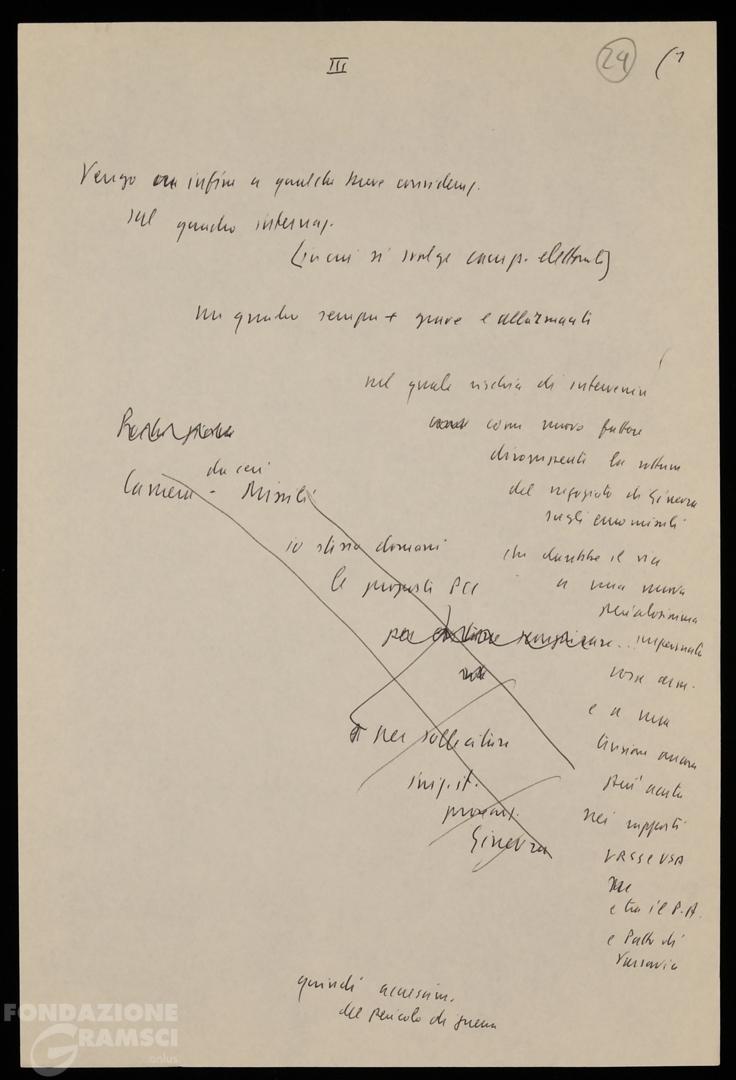 III
24 (1
Vengo ora infine a qualche breve consideraz.
sul quadro internaz.
(in cui si svolge camp. elettorale)
un quadro sempre + grave e allarmante
nel quale rischia di intervenire
come nuovo fattore
dirompente la rottura
del negoziato di Ginevra
sugli euromissili
che darebbe il via
a una nuova
pericolosissima
impennata
corsa arm.
e a una
tensione ancora
più acuta
nei rapporti
URSS e USA
e tra il P.A.
e Patto di
Varsavia
da ieri
Camera - Missili
io stesso domani
le proposte PCI
per
per sollecitare
Ginevra
quindi accrescim.
del pericolo di guerra
FONDAZIONE
GRAMSCI
onlus